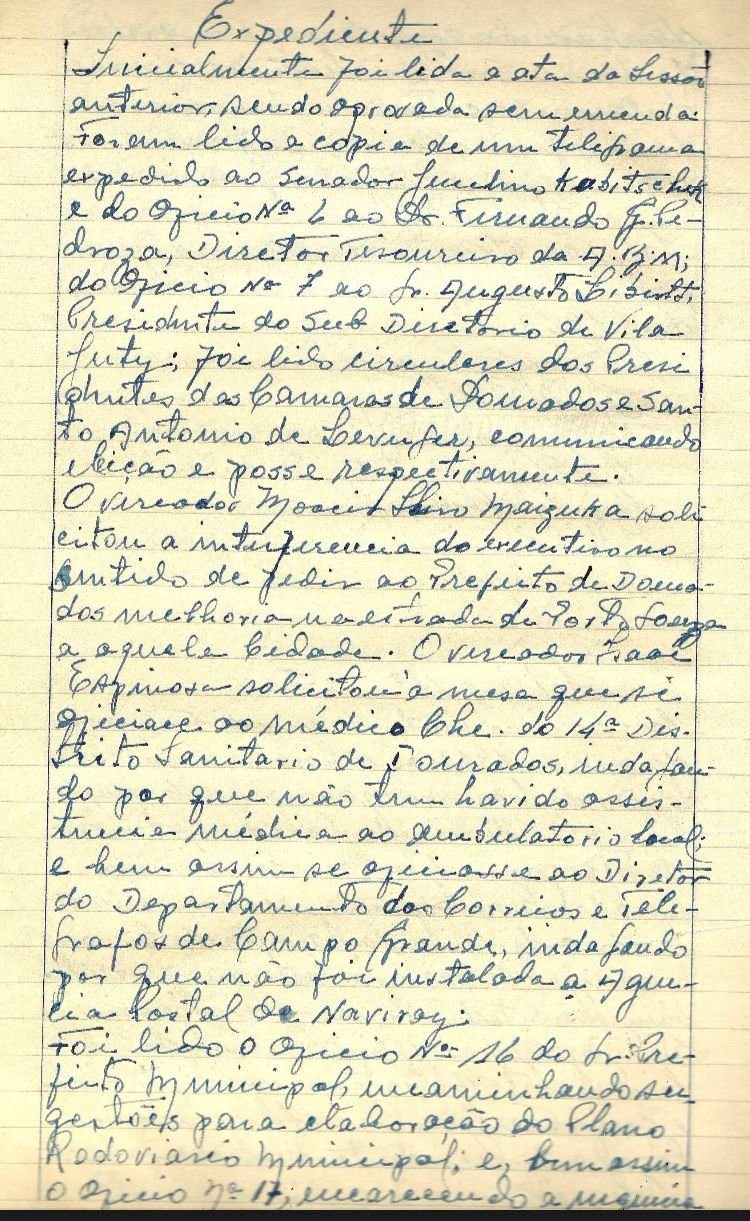 Expediente
Inicialmente foi lida a ata da Sessão
anterior, sendo aprovada sem emenda.
Foram lido a copia de um telegrama
expedido ao Senador Jucelino Kubitschek
e do Oficio Nº 6 ao Dr. Fernando G. Pe-
droza, Diretor Tesoureiro da A.B.M;
do Oficio Nº 7 ao Sr. Augusto
Presidente do Sub Diretorio de Vila
Juty; foi lido circulares dos Presi
dentes das Camaras de Dourados e San-
to Antonio de Leverger, comunicando
eleição e posse respectivamente.
O vereador Moacir soli
citou a interferencia do executivo no
sentido de pedir ao Prefeito de Doura-
dos melhoria na estrada de Porto
a aquela Cidade. O vereador Isaac
Espinosa solicitou a mesa que se
oficiace ao médico Che. do 14º Dis-
trito Sanitario de Dourados, indagan-
do por que não tem havido assis-
tencia médica ao ambulatorio local;
e bem assim se oficiasse ao Diretor
do Departamento dos Correios e Tele-
grafos de Campo Grande, indagando
por que não foi instalada a Agen-
cia Postal de Naviray.
Foi lido o Oficio Nº 16 do Sr. Pre-
feito Municipal, encaminhando su-
gestões para elaboração do Plano
Rodoviario Municipal; e, bem assim
o Oficio Nº 17, encarecendo a